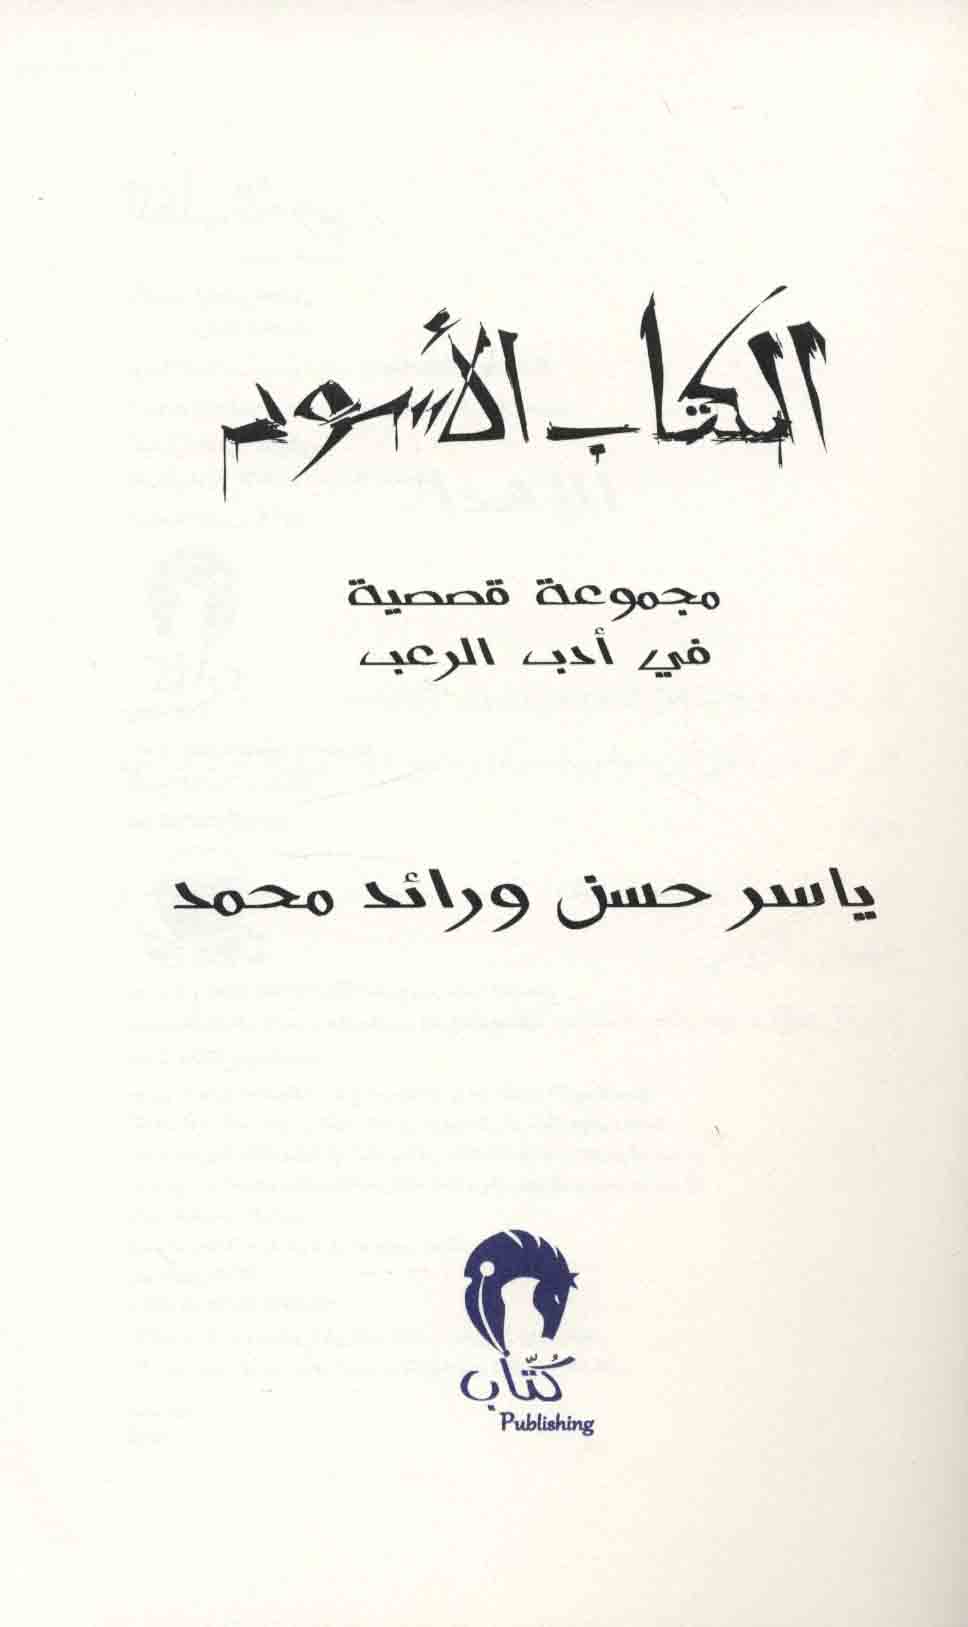 الكتاب الأسود
مجموعة قصصية
في أدب الرعب
ياسر حسن ورائد محمد
كُتّاب
Publishing